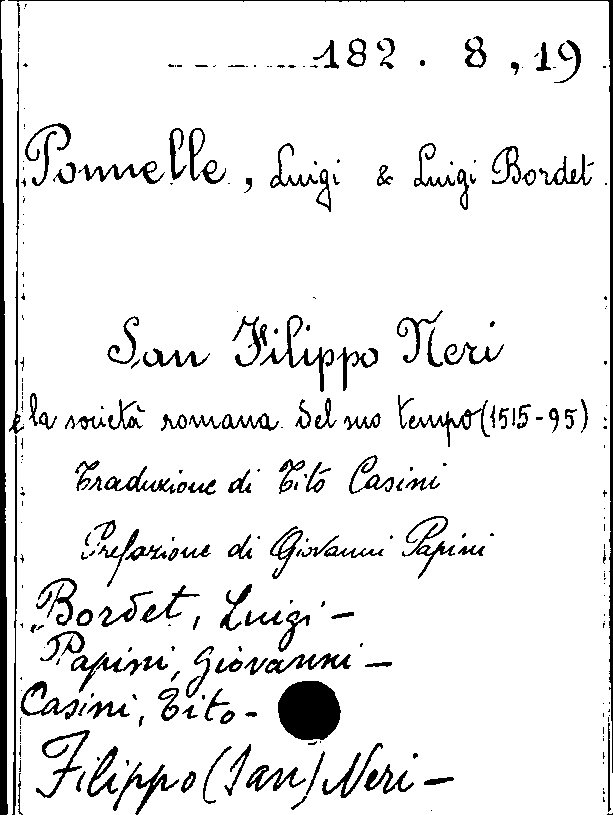 182. 8, 19
Ponnelle, Luigi & Luigi Bordet
San Filippo Neri
e la società romana del suo tempo (1515-95)
Traduzione di Tito Casini
Prefazione di Giovanni Papini
Bordet, Luigi -
Papini, Giovanni -
Casini, Tito -
Filippo (San) Neri -